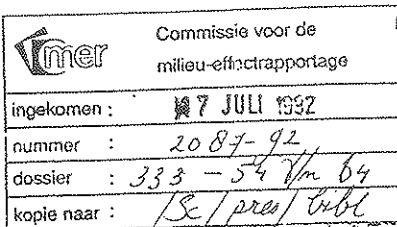 mer
Commissie voor de
milieu-effectrapportage
ingekomen : 7 JULI 1992
nummer : 2087-92
dossier : 333 - 54 t/m 64
kopie naar : /Sc/pres/bibl